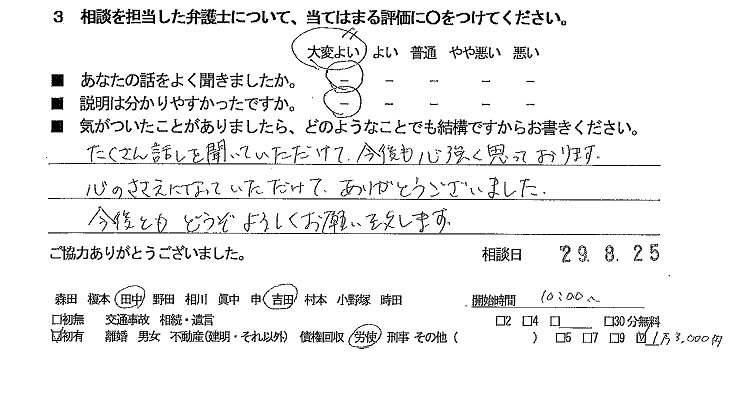 3 相談を担当した弁護士について、当てはまる評価に○をつけてください。
大変よい よい 普通 やや悪い 悪い
■ あなたの話をよく聞きましたか。 － － － － －
■ 説明は分かりやすかったですか。 － － － － －
■ 気がついたことがありましたら、どのようなことでも結構ですからお書きください。
たくさん話しを聞いていただけて、今後も心強く思っております.
心のささえになっていただけて、ありがとうございました.
今後とも どうぞよろしくお願い致します.
ご協力ありがとうございました。 相談日 29. 8. 25
森田 榎本 田中 野田 相川 眞中 申 吉田 村本 小野塚 時田 開始時間 10:00~
□初無 交通事故 相続・遺言 □2 □4 □ □30分無料
☑初有 離婚 男女 不動産(建明・それ以外) 債権回収 労使 刑事 その他 ( ) □5 □7 □9 ☑ 1万3,000円